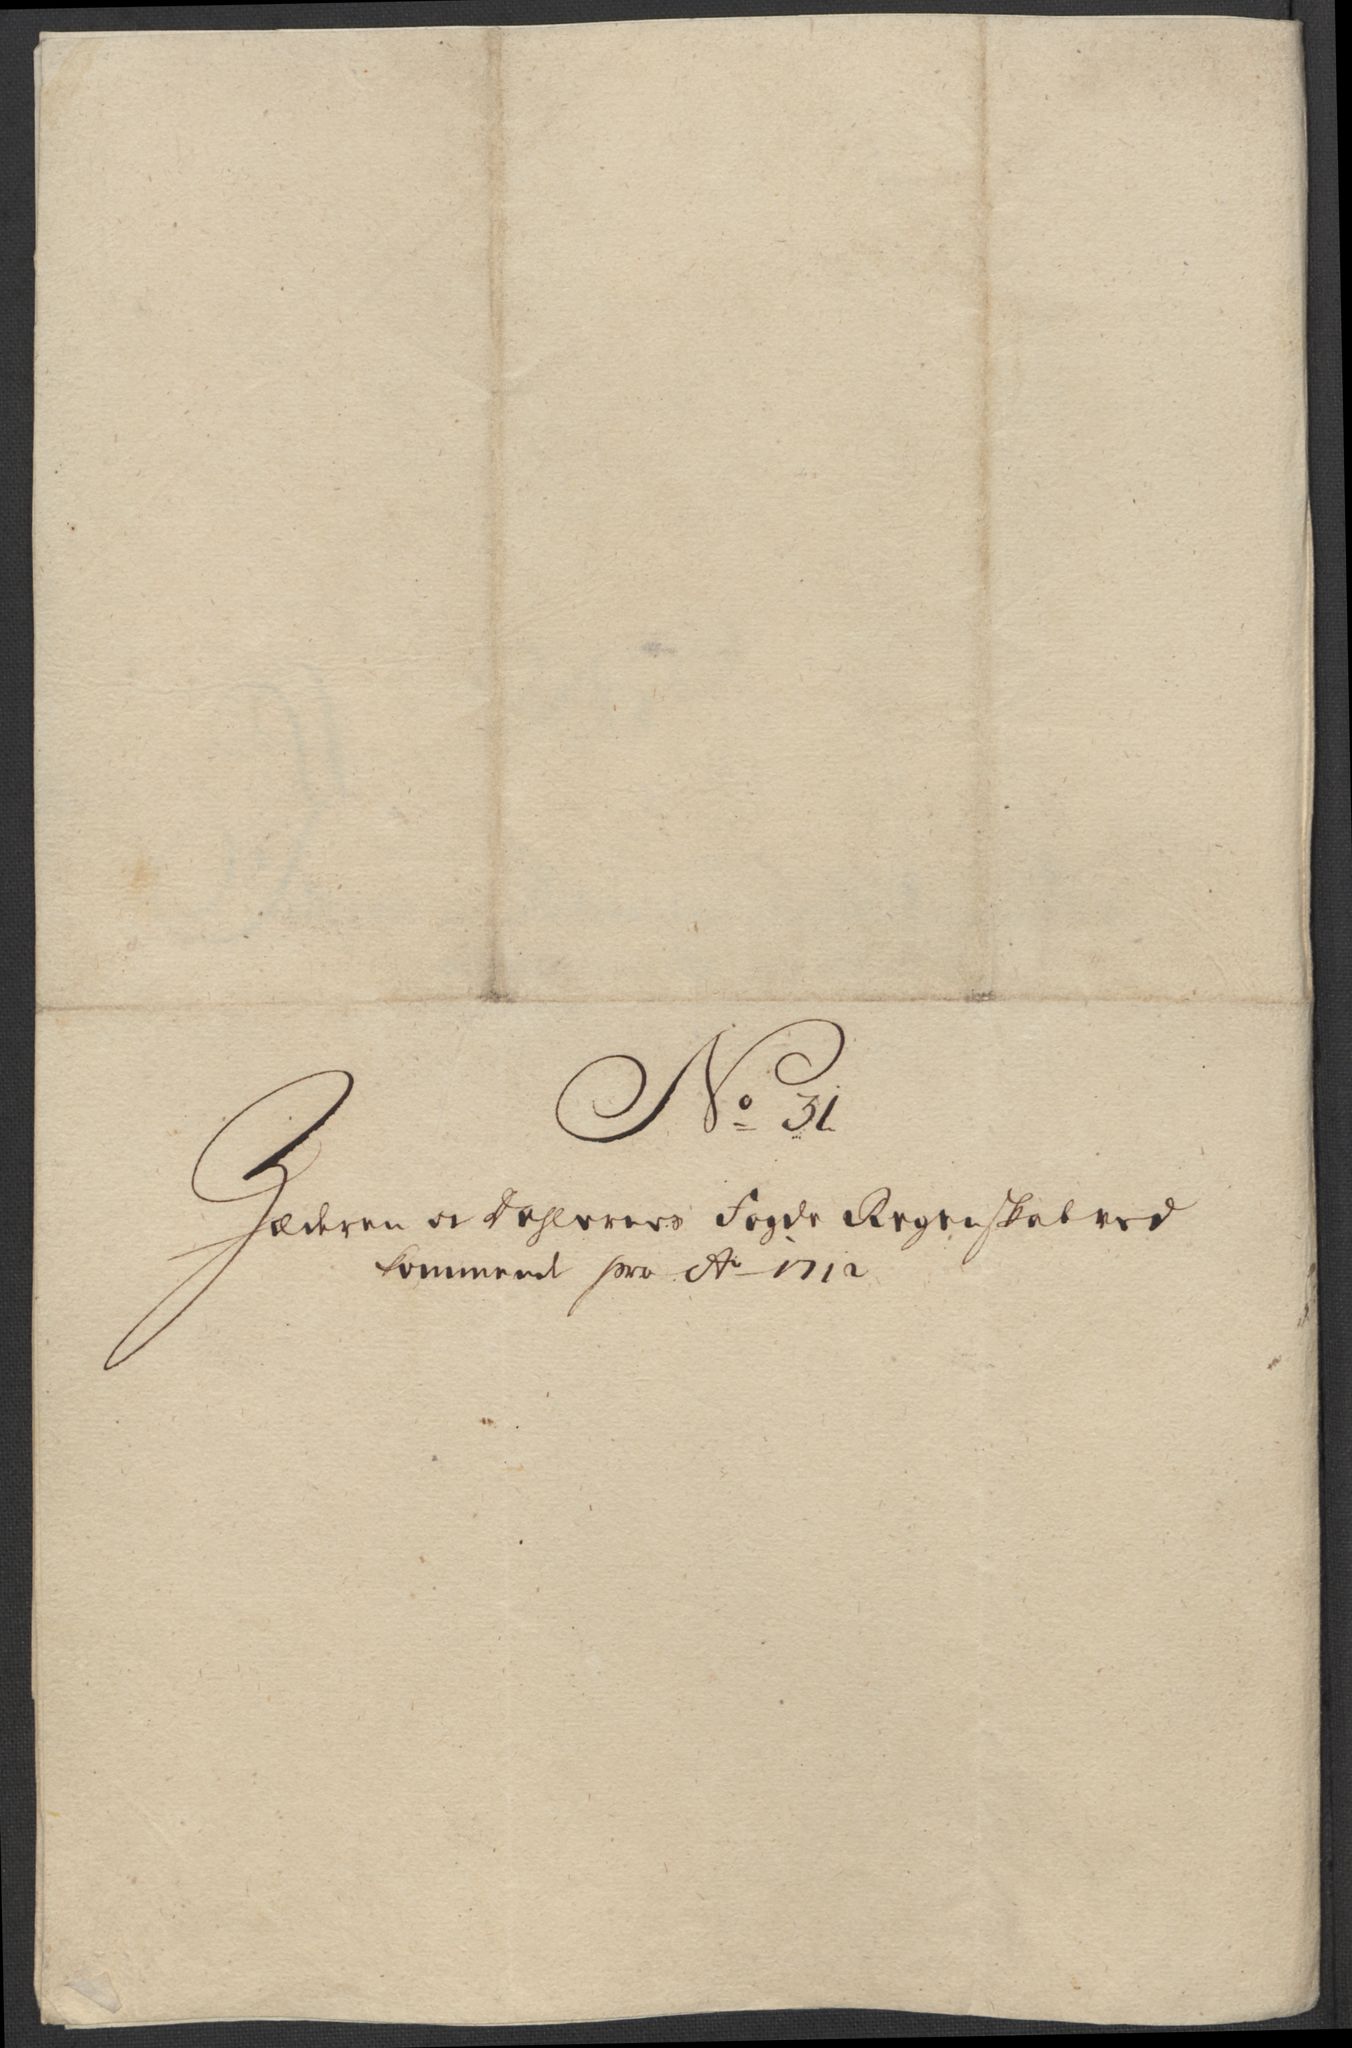 No 31
Jæderen oc Dahlernes Fogde Regenskab ved
kommend pro Ao 1712